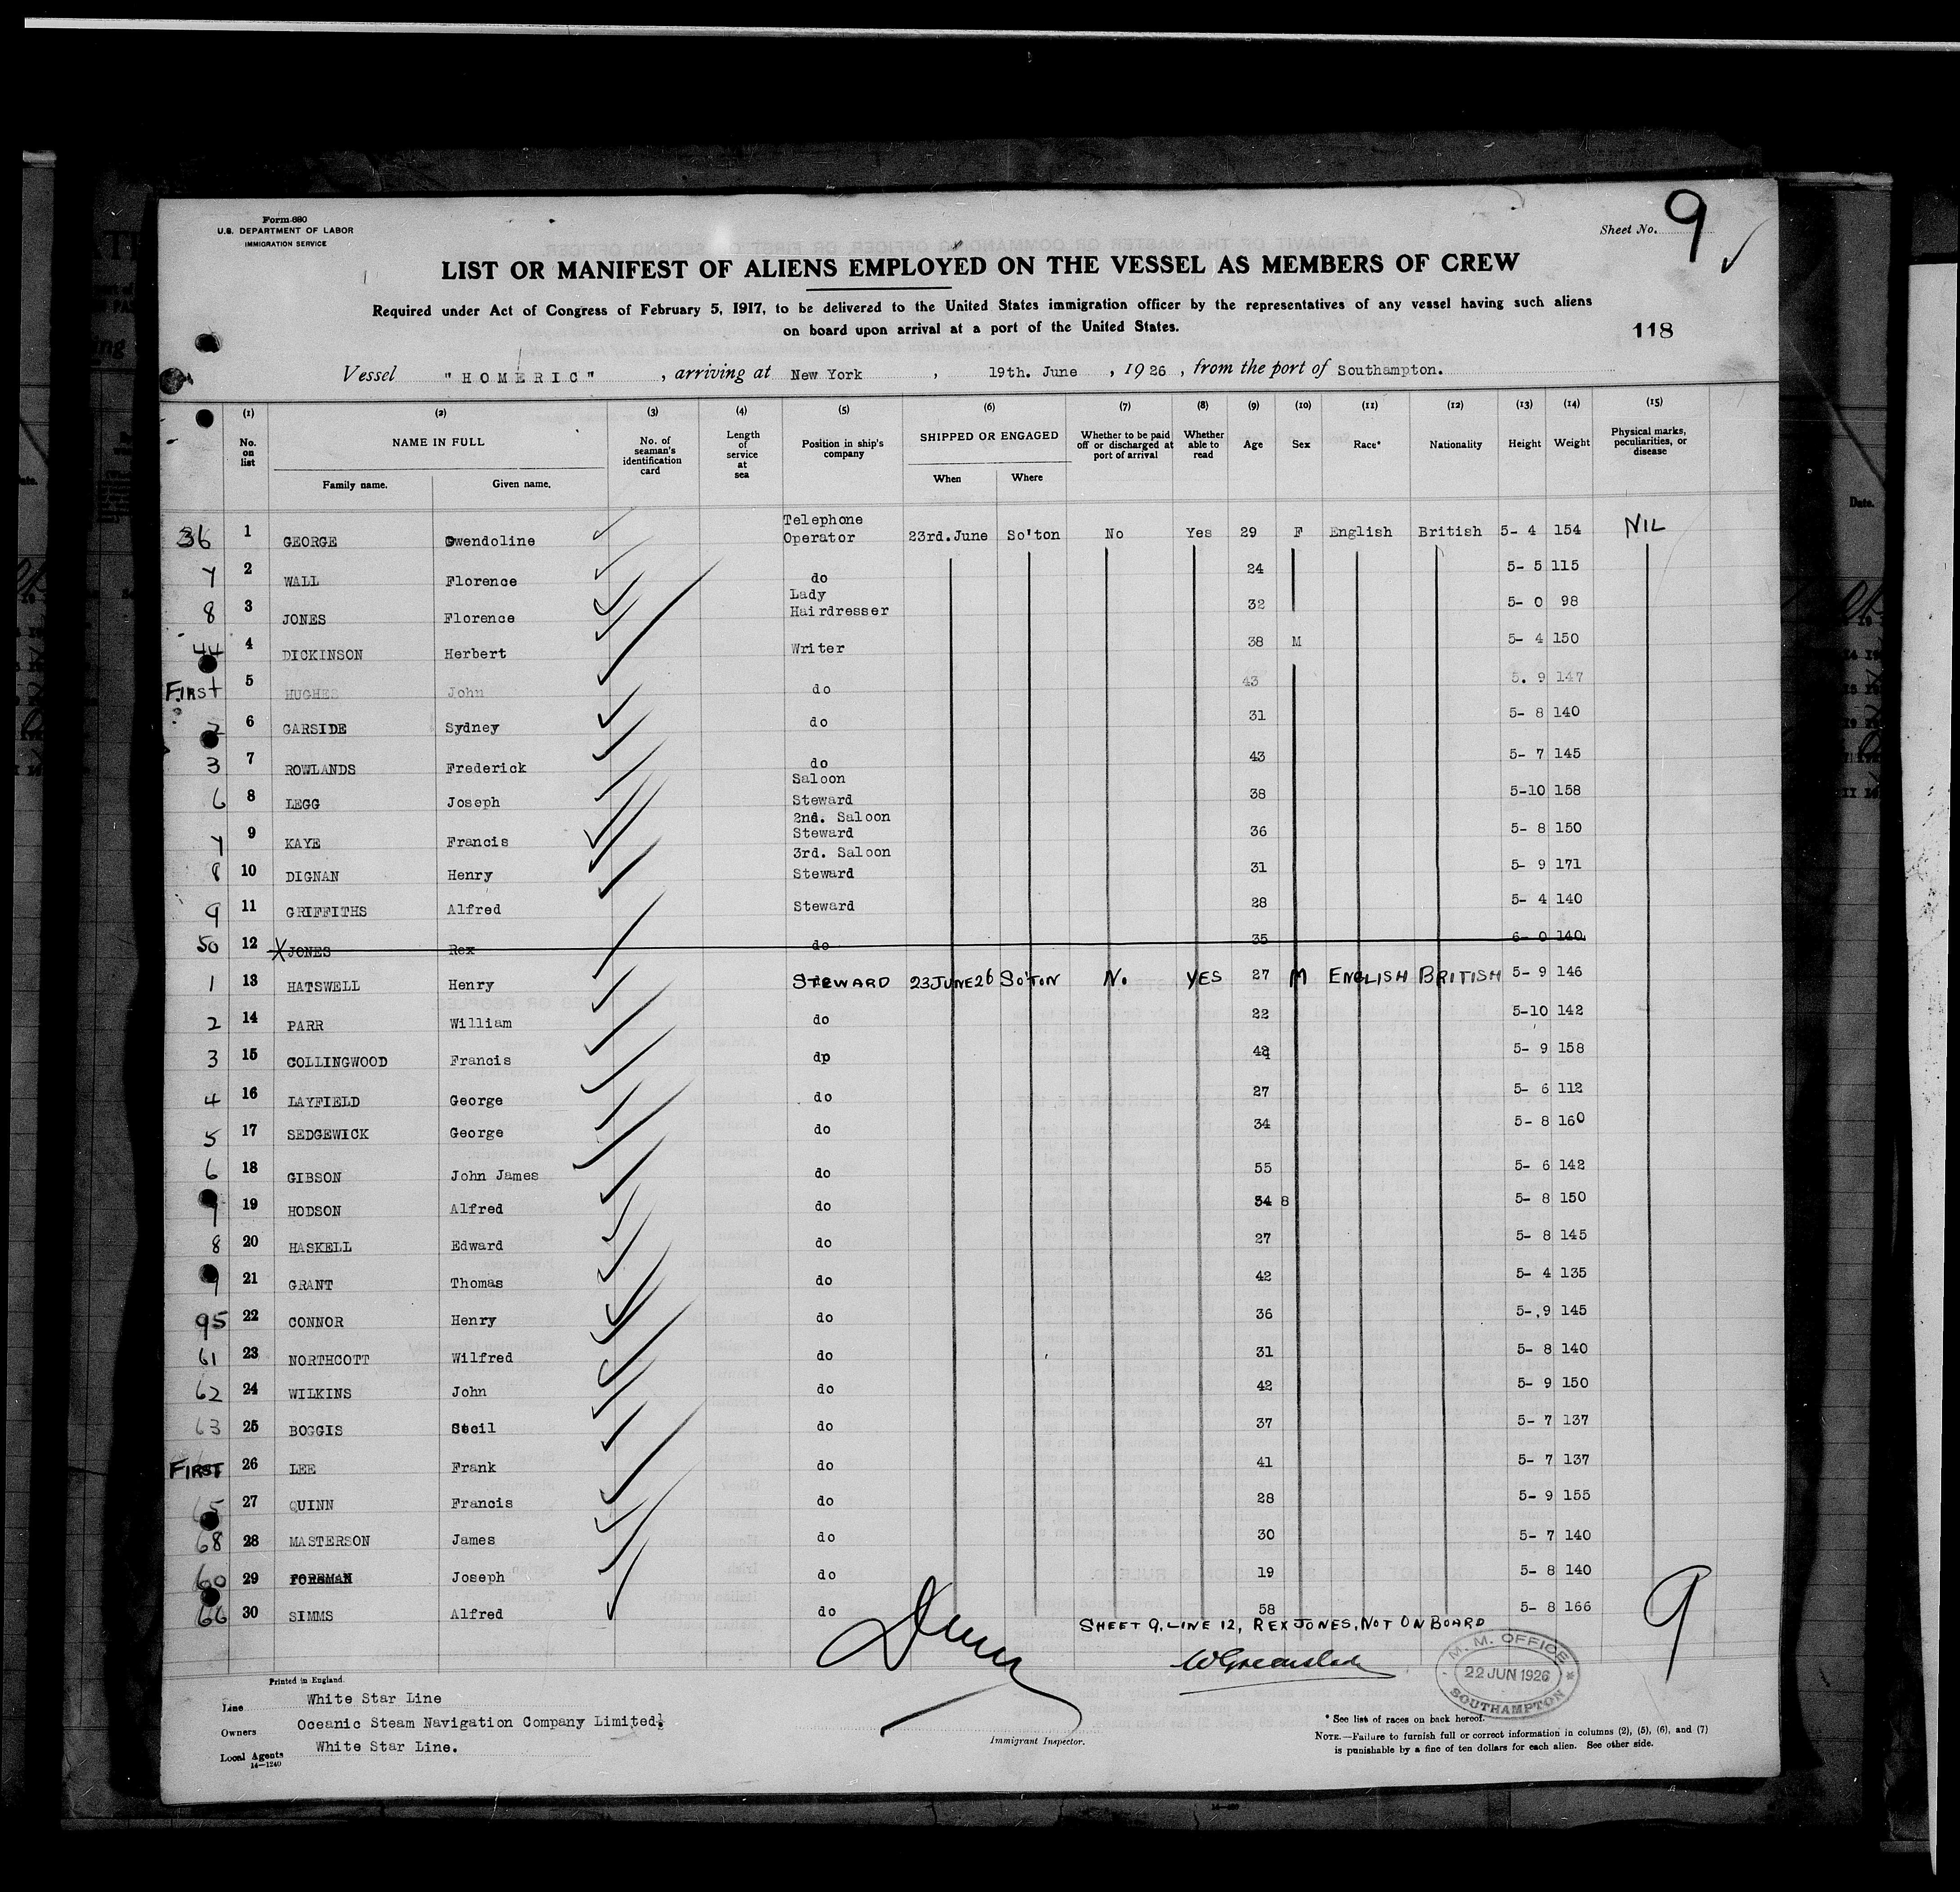 Form 680
U.S. DEPARTMENT OF LABOR
IMMIGRATION SERVICE
Sheet No. 9
LIST OR MANIFEST OF ALIENS EMPLOYED ON THE VESSEL AS MEMBERS OF CREW
Required under Act of Congress of February 5, 1917, to be delivered to the United States immigration officer by the representatives of any vessel having such aliens
on board upon arrival at a port of the United States.
118
Vessel "HOMERIC", arriving at New York, 19th. June, 1926, from the port of Southampton.
(1) (2) (3) (4) (5) (6) (7) (8) (9) (10) (11) (12) (13) (14) (15)
No. on list NAME IN FULL Family name. Given name. No. of seaman's identification card Length of service at sea Position in ship's company SHIPPED OR ENGAGED When Where Whether to be paid off or discharged at port of arrival Whether able to read Age Sex Race* Nationality Height Weight Physical marks, peculiarities, or disease
36 1 GEORGE Gwendoline Telephone Operator 23rd.June So'ton No Yes 29 F English British 5- 4 154 NIL
7 2 WALL Florence do 24 5- 5 115
8 3 JONES Florence Lady Hairdresser 32 5- 0 98
44 4 DICKINSON Herbert Writer 38 M 5- 4 150
FIRST 5 HUGHES John do 43 5. 9 147
2 6 GARSIDE Sydney do 31 5- 8 140
3 7 ROWLANDS Frederick do 43 5- 7 145
6 8 LEGG Joseph Saloon Steward 38 5-10 158
7 9 KAYE Francis 2nd. Saloon Steward 36 5- 8 150
8 10 DIGNAN Henry 3rd. Saloon Steward 31 5- 9 171
9 11 GRIFFITHS Alfred Steward 28 5- 4 140
50 12 X JONES Rex do 35 6- 0 140
1 13 HATSWELL Henry STEWARD 23JUNE26 SO'TON No. YES 27 M ENGLISH BRITISH 5- 9 146
2 14 PARR William do 22 5-10 142
3 15 COLLINGWOOD Francis dp 5- 9 158
4 16 LAYFIELD George do 27 5- 6 112
5 17 SEDGEWICK George do 34 5- 8 160
6 18 GIBSON John James do 55 5- 6 142
19 HODSON Alfred do 34 8 5- 8 150
8 20 HASKELL Edward do 27 5- 8 145
9 21 GRANT Thomas do 42 5- 4 135
95 22 CONNOR Henry do 36 5-.9 145
61 23 NORTHCOTT Wilfred do 31 5- 8 140
62 24 WILKINS John do 42 5- 9 150
63 25 BOGGIS do 37 5- 7 137
FIRST 26 LEE Frank do 41 5- 7 137
65 27 QUINN Francis do 28 5- 9 155
68 28 MASTERSON James do 30 5- 7 140
60 29 FOREMAN Joseph do 19 5- 8 140
66 30 SIMMS Alfred do 58 5- 8 166
SHEET 9, LINE 12, REX JONES, NOT ON BOARD
9
M. M. OFFICE
22 JUN 1926
SOUTHAMPTON
Printed in England.
Line White Star Line
Owners Oceanic Steam Navigation Company Limited.
Local Agents White Star Line.
14—1240
Immigrant Inspector.
* See list of races on back hereof.
NOTE.—Failure to furnish full or correct information in columns (2), (5), (6), and (7)
is punishable by a fine of ten dollars for each alien. See other side.